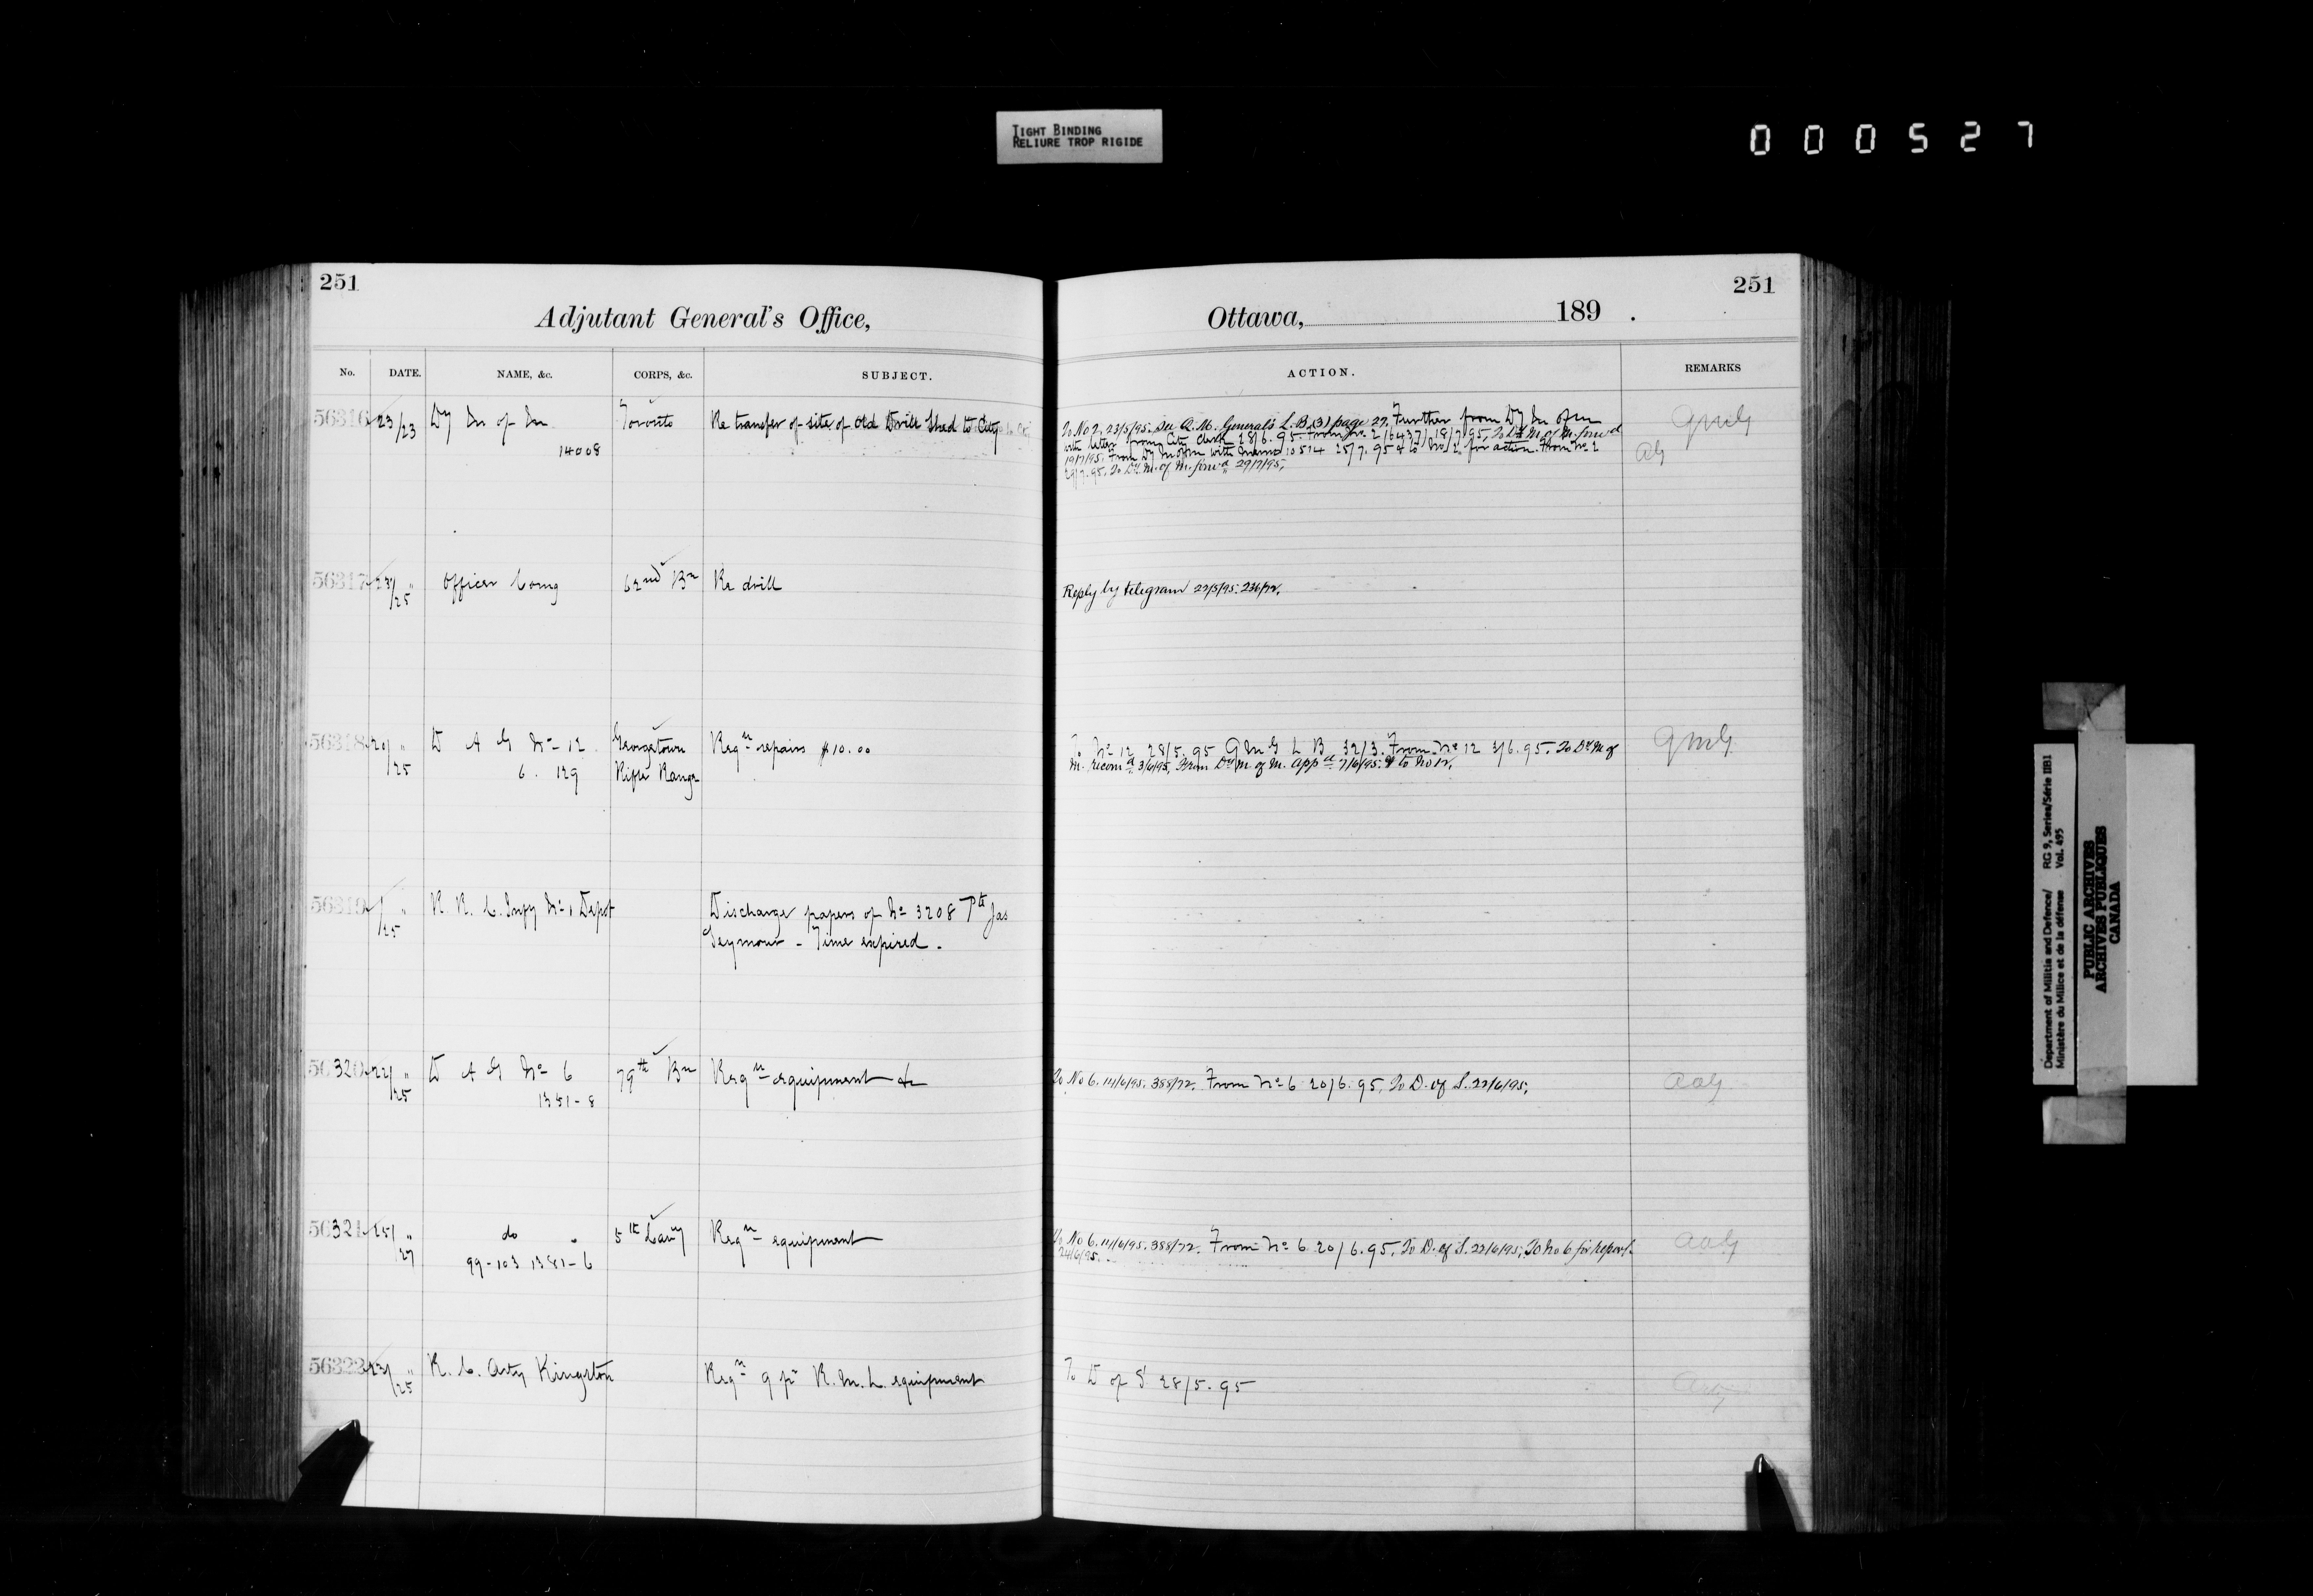 TIGHT BINDING
RELIURE TROP RIGIDE
000527
251
Adjutant General's Office,
No. DATE. NAME, &c. CORPS, &c. SUBJECT.
56316 23/23 Dy Mr of Mn Toronto Re transfer of site of old Drill Shed to City
14008
56317 23/25 " Officer Comg 62nd Bn Re drill
56318 20/25 " D A G No 12 Georgetown Reqn repairs $10.00
6. 129 Rifle Range
56319 /25 " R. R. C. Infy No 1 Depot Discharge papers of No 3208 Pte Jas
Seymour - Time expired.
56320 22/25 " D A G No 6 79th Bn Reqn equipment &c
1351-8
56321 25/27 " do " 5th Cavy Reqn equipment
99-103 1381-6
56322 23/25 " R. C. Arty Kingston Reqn 9 pr R.M.L. equipment
251
Ottawa, 189 .
ACTION. REMARKS
To No 2, 23/5/95. See Q. M. General's L.B.(3) page 27. Further from Dy Mr of Mn QMG
with letter from City Clerk 28/6.95. From No. 2 18/7/95, To Dy M. of M. forwd AG
19/7/95. From Dy M of M with memo 10514 25/7.95 & to No 2 for action. From No 2
29/7.95. To Dy. M. of M. forwd 29/7/95,
Reply by telegram 22/5/95. 236/72.
To No 12 28/5.95 QMG L B 32/3. From No 12 3/6.95. To Dy M of QMG
M. recomd 3/6/95, From Dy M. of M. appd 7/6/95. & to No 12.
To No 6. 388/72. From No 6 20/6.95. To D. of S. 22/6/95, AAG
To No 6. 388/72. From No 6 20/6.95. To D. of S. 22/6/95, To No 6 for report AAG
24/6/95.
To D of S 28/5.95
Department of Militia and Defence/ RG 9, Series/Série IIB1
Ministère du Milice et de la défense Vol. 495
PUBLIC ARCHIVES
ARCHIVES PUBLIQUES
CANADA